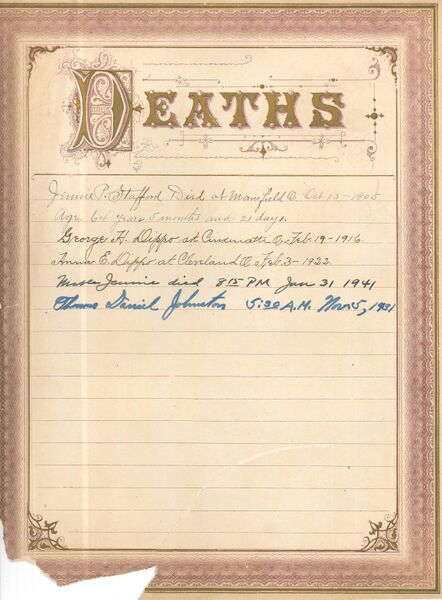 DEATHS
Jennie P. Stafford Died at Mansfield O. Oct 13-1905
Age 64 years 5 months and 21 days.
George H. Dippo at Cincinatti O. Feb 19-1916.
Anna E. Dippo at Cleveland O. Feb. 3-1922.
Jennie died 8 15 PM Jan 31 1941
Thomas Daniel Johnston 5:30 A.M. Nov. 5, 1931